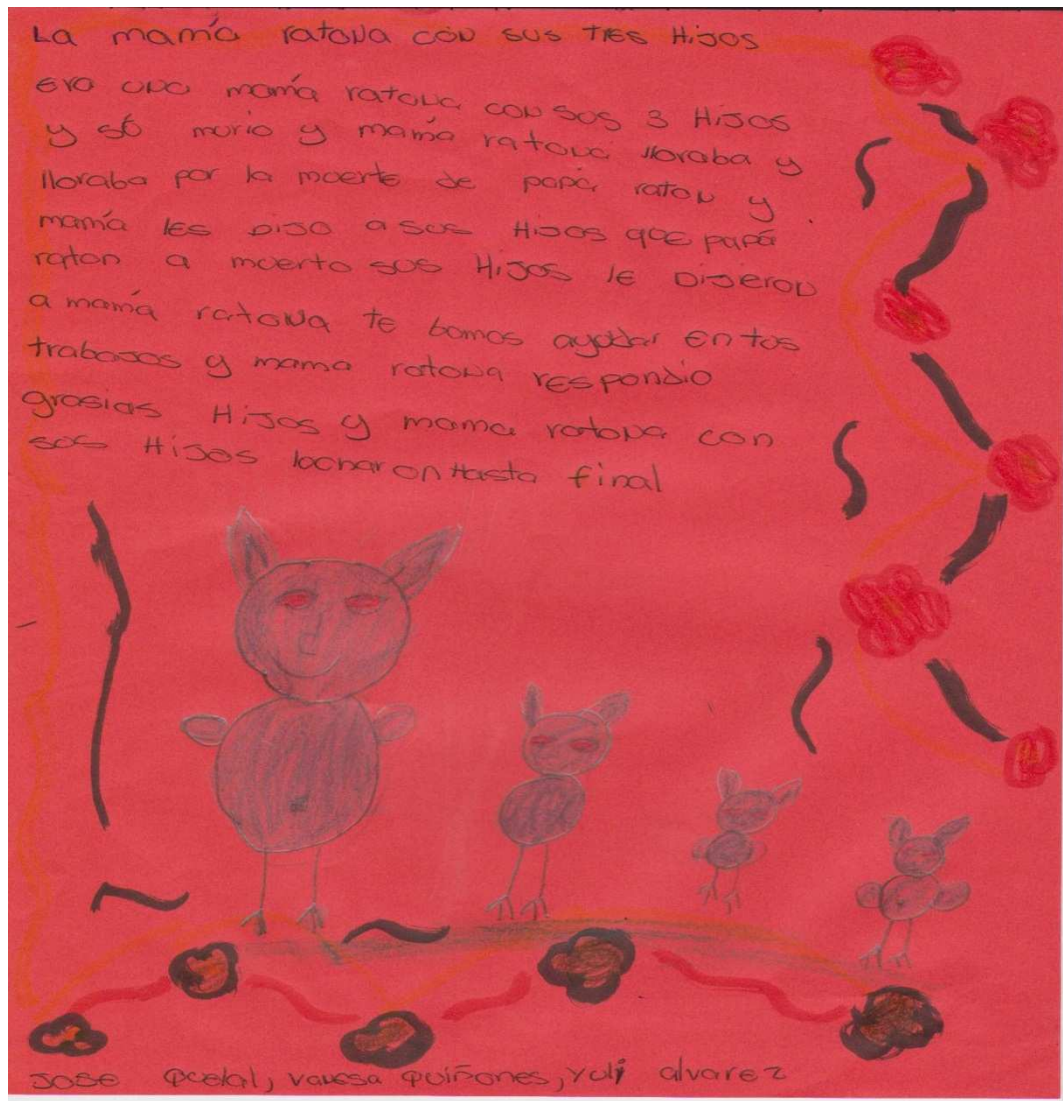 La mamá ratona con sus tres Hijos
era una mamá ratona con sus 3 Hijos
y só murio y mamá ratona lloraba y
lloraba por la muerte de papá raton y
mamá les Dijo a sus Hijos que papá
raton a muerto sus Hijos le Dijeron
a mamá ratona te bamos ayudar en tus
trabajos y mama ratona respondio
grasias Hijos y mama ratona con
sus Hijos lucharon Hasta final
Jose, vanesa Quiñones, Yuli alvarez